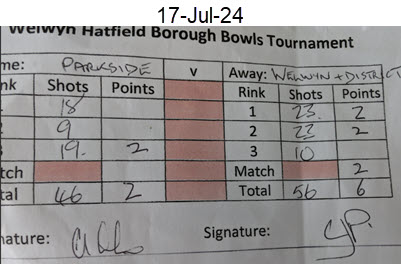 17-Jul-24
Welwyn Hatfield Borough Bowls Tournament
me: PARKSIDE v Away: WELWYN + DISTRICT
nk Shots Points Rink Shots Points
18 1 23. 2
9 2 23 2
19. 2 3 10
tch Match 2
tal 46 2 Total 56 6
nature: Signature: